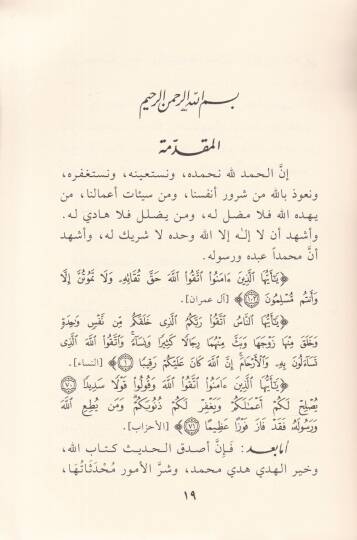 بسم الله الرحمن الرحيم
المقدّمة
إنَّ الحمد لله نحمده، ونستعينه، ونستغفره،
ونعوذ بالله من شرور أنفسنا، ومن سيئات أعمالنا، من
يهده الله فلا مضل له، ومن يضلل فلا هادي له.
وأشهد أن لا إلـٰه إلا الله وحده لا شريك له، وأشهد
أنَّ محمداً عبده ورسوله.
﴿يَـٰٓأَيُّهَا ٱلَّذِينَ ءَامَنُوا۟ ٱتَّقُوا۟ ٱللَّهَ حَقَّ تُقَاتِهِۦ وَلَا تَمُوتُنَّ إِلَّا
وَأَنتُم مُّسْلِمُونَ ١٠٢﴾ [آل عمران].
﴿يَـٰٓأَيُّهَا ٱلنَّاسُ ٱتَّقُوا۟ رَبَّكُمُ ٱلَّذِى خَلَقَكُم مِّن نَّفْسٍ وَٰحِدَةٍ
وَخَلَقَ مِنْهَا زَوْجَهَا وَبَثَّ مِنْهُمَا رِجَالًا كَثِيرًا وَنِسَآءً وَٱتَّقُوا۟ ٱللَّهَ ٱلَّذِى
تَسَآءَلُونَ بِهِۦ وَٱلْأَرْحَامَ إِنَّ ٱللَّهَ كَانَ عَلَيْكُمْ رَقِيبًا ١﴾ [النساء].
﴿يَـٰٓأَيُّهَا ٱلَّذِينَ ءَامَنُوا۟ ٱتَّقُوا۟ ٱللَّهَ وَقُولُوا۟ قَوْلًا سَدِيدًا ٧٠
يُصْلِحْ لَكُمْ أَعْمَـٰلَكُمْ وَيَغْفِرْ لَكُمْ ذُنُوبَكُمْ وَمَن يُطِعِ ٱللَّهَ
وَرَسُولَهُۥ فَقَدْ فَازَ فَوْزًا عَظِيمًا ٧١﴾ [الأحزاب].
أما بعد: فإنَّ أصدق الحديث كتاب الله،
وخير الهدي هدي محمد، وشرَّ الأمور مُحْدَثَاتُهَا،
١٩